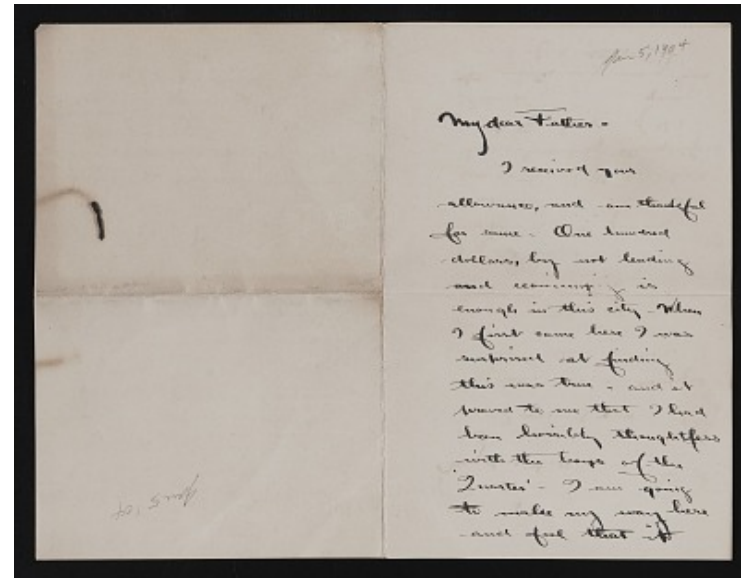 Jan 5, 1904
My dear Father -
I received your
allowance, and am thankful
for same - One hundred
dollars, by not lending
and economizing is
enough in this city - When
I first came here I was
surprised at finding
this was true - and it
proved to me that I had
been horribly thoughtless
with the boys of the
'Quarter' - I am going
to make my way here
and feel that it
Jan 5 '04